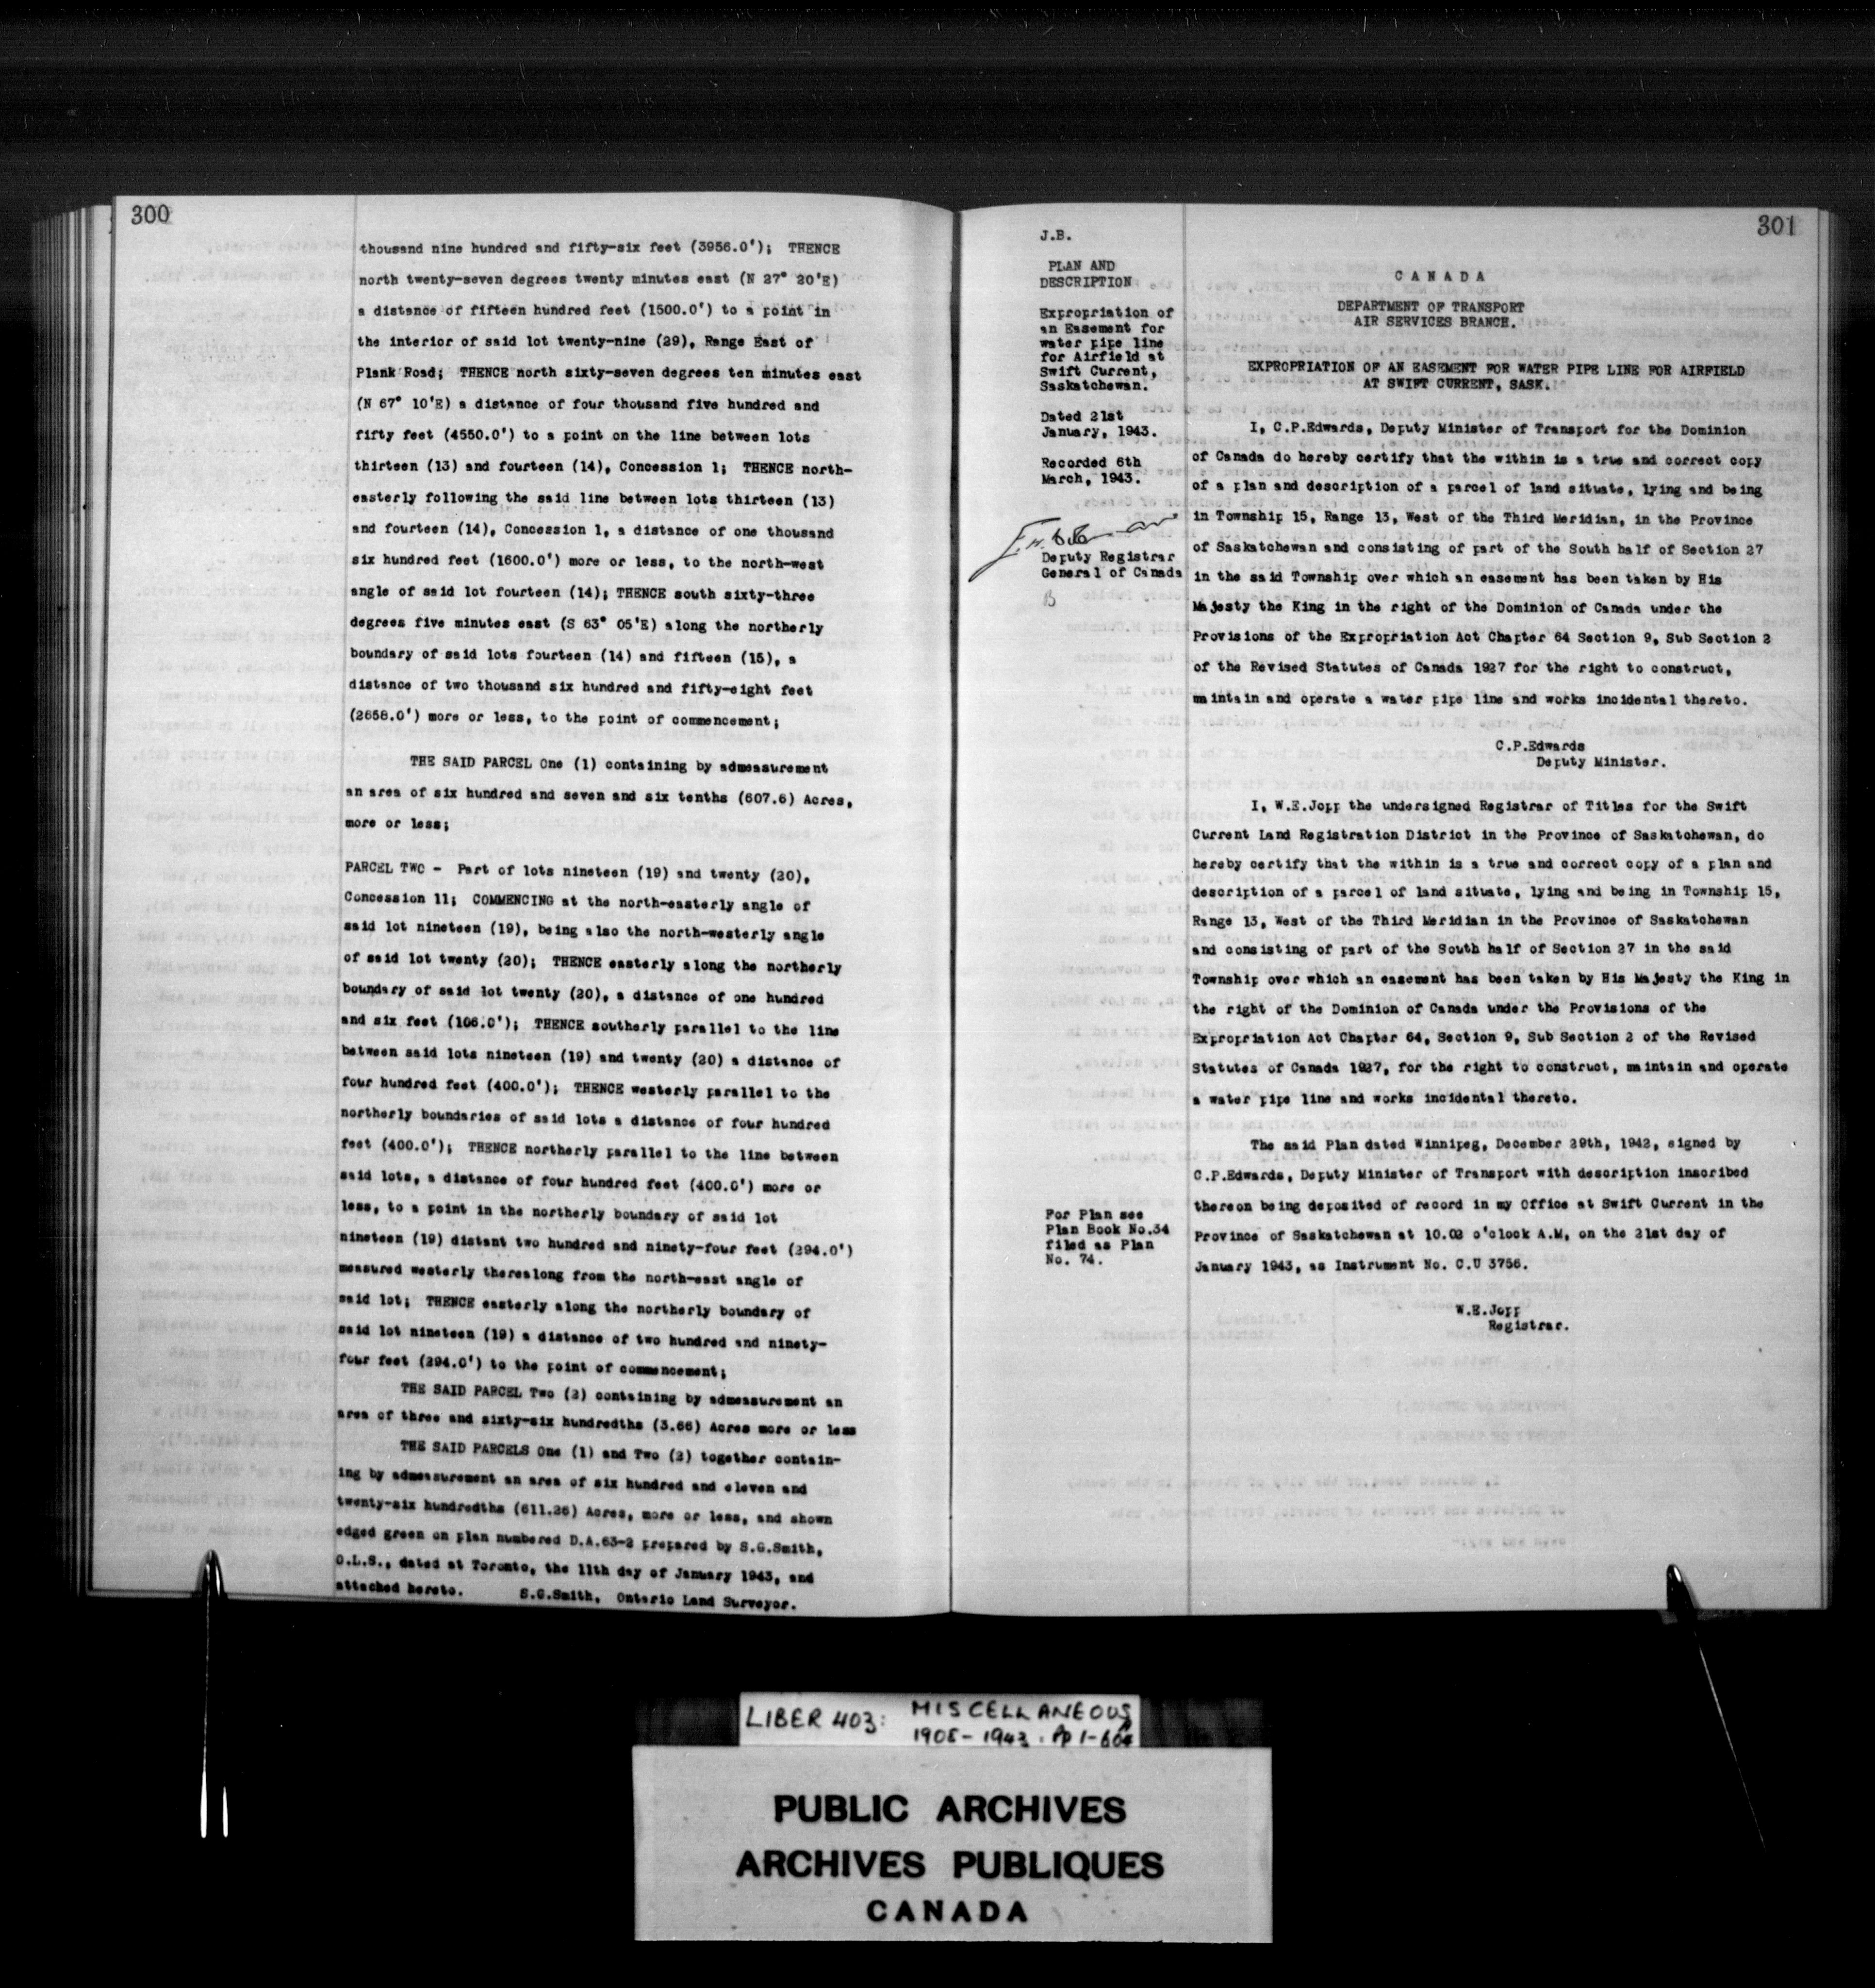 300
thousand nine hundred and fifty-six feet (3956.0'); THENCE
north twenty-seven degrees twenty minutes east (N 27° 20'E)
a distance of fifteen hundred feet (1500.0') to a point in
the interior of said lot twenty-nine (29), Range East of
Plank Road; THENCE north sixty-seven degrees ten minutes east
(N 67° 10'E) a distance of four thousand five hundred and
fifty feet (4550.0') to a point on the line between lots
thirteen (13) and fourteen (14), Concession 1; THENCE north-
easterly following the said line between lots thirteen (13)
and fourteen (14), Concession 1, a distance of one thousand
six hundred feet (1600.0') more or less, to the north-west
angle of said lot fourteen (14); THENCE south sixty-three
degrees five minutes east (S 63° 05'E) along the northerly
boundary of said lots fourteen (14) and fifteen (15), a
distance of two thousand six hundred and fifty-eight feet
(2658.0') more or less, to the point of commencement;
THE SAID PARCEL One (1) containing by admeasurement
an area of six hundred and seven and six tenths (607.6) Acres,
more or less;
PARCEL TWO - Part of lots nineteen (19) and twenty (20),
Concession 11; COMMENCING at the north-easterly angle of
said lot nineteen (19), being also the north-westerly angle
of said lot twenty (20); THENCE easterly along the northerly
boundary of said lot twenty (20), a distance of one hundred
and six feet (106.0'); THENCE southerly parallel to the line
between said lots nineteen (19) and twenty (20) a distance of
four hundred feet (400.0'); THENCE westerly parallel to the
northerly boundaries of said lots a distance of four hundred
feet (400.0'); THENCE northerly parallel to the line between
said lots, a distance of four hundred feet (400.0') more or
less, to a point in the northerly boundary of said lot
nineteen (19) distant two hundred and ninety-four feet (294.0')
measured westerly therealong from the north-east angle of
said lot; THENCE easterly along the northerly boundary of
said lot nineteen (19) a distance of two hundred and ninety-
four feet (294.0') to the point of commencement;
THE SAID PARCEL Two (2) containing by admeasurement an
area of three and sixty-six hundredths (3.66) Acres more or less
THE SAID PARCELS One (1) and Two (2) together contain-
ing by admeasurement an area of six hundred and eleven and
twenty-six hundredths (611.26) Acres, more or less, and shown
edged green on plan numbered D.A.63-2 prepared by S.G.Smith,
O.L.S., dated at Toronto, the 11th day of January 1943, and
attached hereto. S.G.Smith, Ontario Land Surveyor.
301
J.B.
PLAN AND
DESCRIPTION
Expropriation of
an Easement for
water pipe line
for Airfield at
Swift Current,
Saskatchewan.
Dated 21st
January, 1943.
Recorded 6th
March, 1943.
Deputy Registrar
General of Canada
B
For Plan see
Plan Book No.34
filed as Plan
No. 74.
CANADA
DEPARTMENT OF TRANSPORT
AIR SERVICES BRANCH.
EXPROPRIATION OF AN EASEMENT FOR WATER PIPE LINE FOR AIRFIELD
AT SWIFT CURRENT, SASK.
I, C.P.Edwards, Deputy Minister of Transport for the Dominion
of Canada do hereby certify that the within is a true and correct copy
of a plan and description of a parcel of land situate, lying and being
in Township 15, Range 13, West of the Third Meridian, in the Province
of Saskatchewan and consisting of part of the South half of Section 27
in the said Township over which an easement has been taken by His
Majesty the King in the right of the Dominion of Canada under the
Provisions of the Expropriation Act Chapter 64 Section 9, Sub Section 2
of the Revised Statutes of Canada 1927 for the right to construct,
maintain and operate a water pipe line and works incidental thereto.
C.P.Edwards
Deputy Minister.
I, W.E.Jopp the undersigned Registrar of Titles for the Swift
Current Land Registration District in the Province of Saskatchewan, do
hereby certify that the within is a true and correct copy of a plan and
description of a parcel of land situate, lying and being in Township 15,
Range 13, West of the Third Meridian in the Province of Saskatchewan
and consisting of part of the South half of Section 27 in the said
Township over which an easement has been taken by His Majesty the King in
the right of the Dominion of Canada under the Provisions of the
Expropriation Act Chapter 64, Section 9, Sub Section 2 of the Revised
Statutes of Canada 1927, for the right to construct, maintain and operate
a water pipe line and works incidental thereto.
The said Plan dated Winnipeg, December 29th, 1942, signed by
C.P.Edwards, Deputy Minister of Transport with description inscribed
thereon being deposited of record in my Office at Swift Current in the
Province of Saskatchewan at 10.02 o'clock A.M, on the 21st day of
January 1943, as Instrument No. C.U 3756.
W.E.Jopp
Registrar.
LIBER 403: MISCELLANEOUS
1905-1943. Pp 1-
PUBLIC ARCHIVES
ARCHIVES PUBLIQUES
CANADA